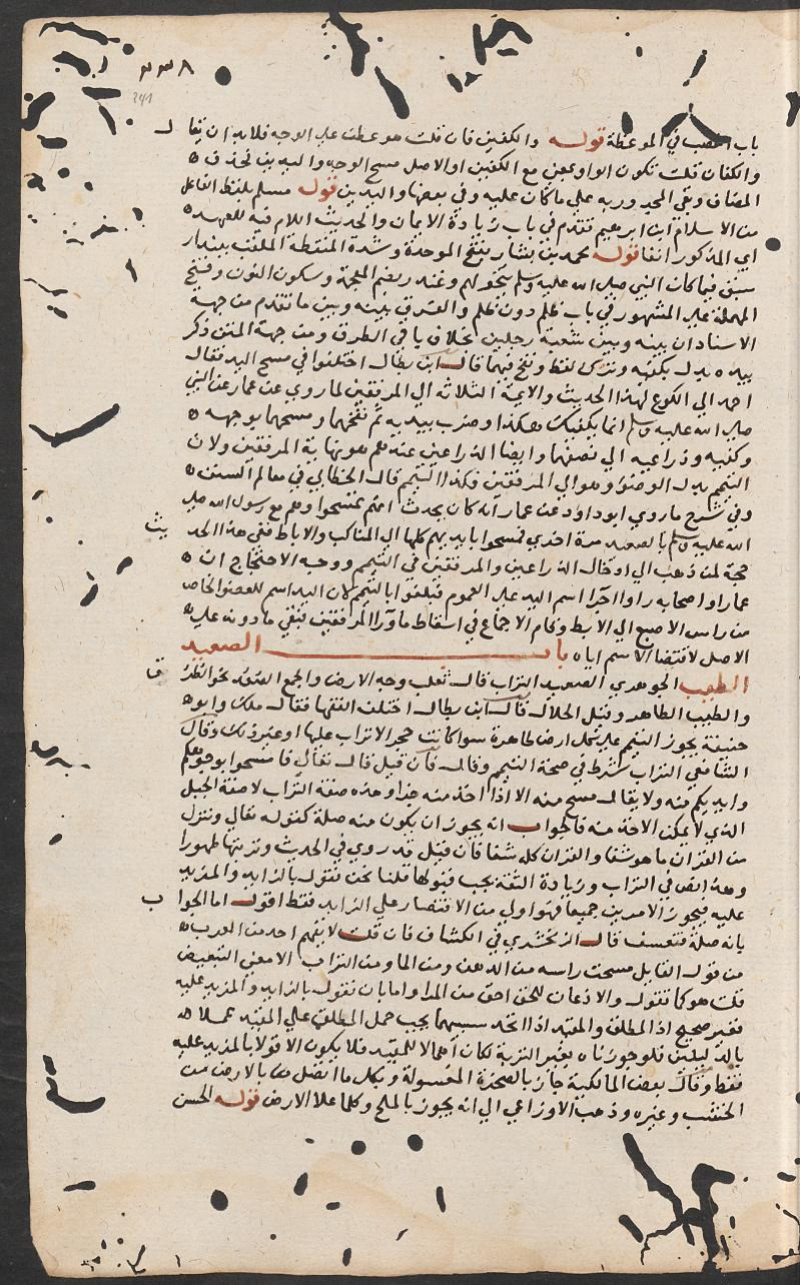 ٢٣٨
241
باب الغضب في الموعظة قوله والكفين فان قلت هو عطف على الوجه فلا بد ان يقال
والكفان قلت تكون الواو بمعنى مع الكفين او الاصل مسح الوجه واليدين فحذف
المضاف وبقي المجرور به على ما كان عليه وفي بعضها واليدين قوله مسلم بلفظ الفاعل
من الاسلام ابن ابراهيم تقدم في باب زيادة الايمان والحديث اللام فيه للعهد
اي المذكور انفا قوله محمد بن بشار بفتح الموحدة وشدة المنقطة الملقب ببندار
سبق فيما كان النبي صلى الله عليه وسلم يتخولهم وغندر بضم المعجمة وسكون النون وفتح
المهملة على المشهور في باب ظلم دون ظلم والفرق بينه وبين ما تقدم من جهة
الاسناد ان بينه وبين شعبة رجلين بخلاف باقي الطرق ومن جهة المتن ذكر
بيده بدل بكفيه وترك لفظ ونفخ فيهما قال ابن بطال اختلفوا في مسح اليد فقال
احمد الى الكوع لهذا الحديث والايمة الثلاثة الى المرفقين لما روي عن عمار عن النبي
صلى الله عليه وسلم انما يكفيك هكذا وضرب بيديه ثم نفخهما ومسحهما بوجهه
وكفيه وذراعيه الى نصفها وايضا الذراعين عندهم هو نهاية المرفقين ولان
التيمم بدل الوضوء وهو الى المرفقين فكذا التيمم قال الخطابي في معالم السنن
وفي شرح ما روي ابو داود عن عمار انه كان يحدث انهم تمسحوا وهم مع رسول الله صلى
الله عليه وسلم بالصعيد مرة اخرى فمسحوا بايديهم كلها الى المناكب والاباط ففي هذا الحديث
حجة لمن ذهب الى ادخال الذراعين والمرفقين في التيمم ووجه الاحتجاج ان
عمارا واصحابه راوا اجرا اسم اليد على العموم فبلغوا بالتيمم لان اليد اسم للعضو الخاص
من راس الاصبع الى الابط وقام الاجماع في اسقاط ما ورا المرفقين فبقي ما دونه على
الاصل لاقتضا الاسم اياه باب الصعيد
الطيب الجوهري الصعيد التراب قال ثعلب وجه الارض والجمع الصعد نحو الطرق
والطيب الطاهر وقيل الحلال قال ابن بطال اختلف الفقها فقال مالك وابو
حنيفة يجوز التيمم على كل ارض طاهرة سوا كانت حجر الا تراب عليها او غير ذلك وقال
الشافعي التراب شرط في صحة التيمم وقال فان قيل قال تعالى فامسحوا بوجوهكم
وايديكم منه ولا يقال مسح منه الا اذا اخذ منه جزا وهذه صفة التراب لا صفة الجبل
الذي لا يمكن الاخذ منه فالجواب انه يجوز ان يكون منه صلة كقوله تعالى وننزل
من القران ما هو شفا والقران كله شفا فان قيل قد روي في الحديث وتربتها طهورا
وهذا نص في التراب وزيادة الثقة يجب قبولها قلنا نحن نقول بالزايد والمزيد
عليه فيجوز الامرين جميعا فهو اولى من الاقتصار على الزايد فقط اقول اما الجواب
بانه صلة فتعسف قال الزمخشري في الكشاف فان قلت لا يفهم احد من العرب
من قول القايل مسحت راسه من الدهن ومن الما ومن التراب الا معنى التبعيض
قلت هو كما تقول والاذعان للحق احق من المرا واما بان نقول بالزايد والمزيد عليه
فغير صحيح اذ المطلق والمقيد اذا اتحد سببهما يجب حمل المطلق على المقيد عملا
بالدليلين فلو جوزناه بغير التربة لكان اهمالا للمقيد فلا يكون الا قولا بالمزيد عليه
فقط وقال بعض المالكية جاز بالصخرة المغسولة وبكل ما اتصل بالارض من
الخشب وغيره وذهب الاوزاعي الى انه يجوز بالملح وكلما علا الارض قوله الحسن